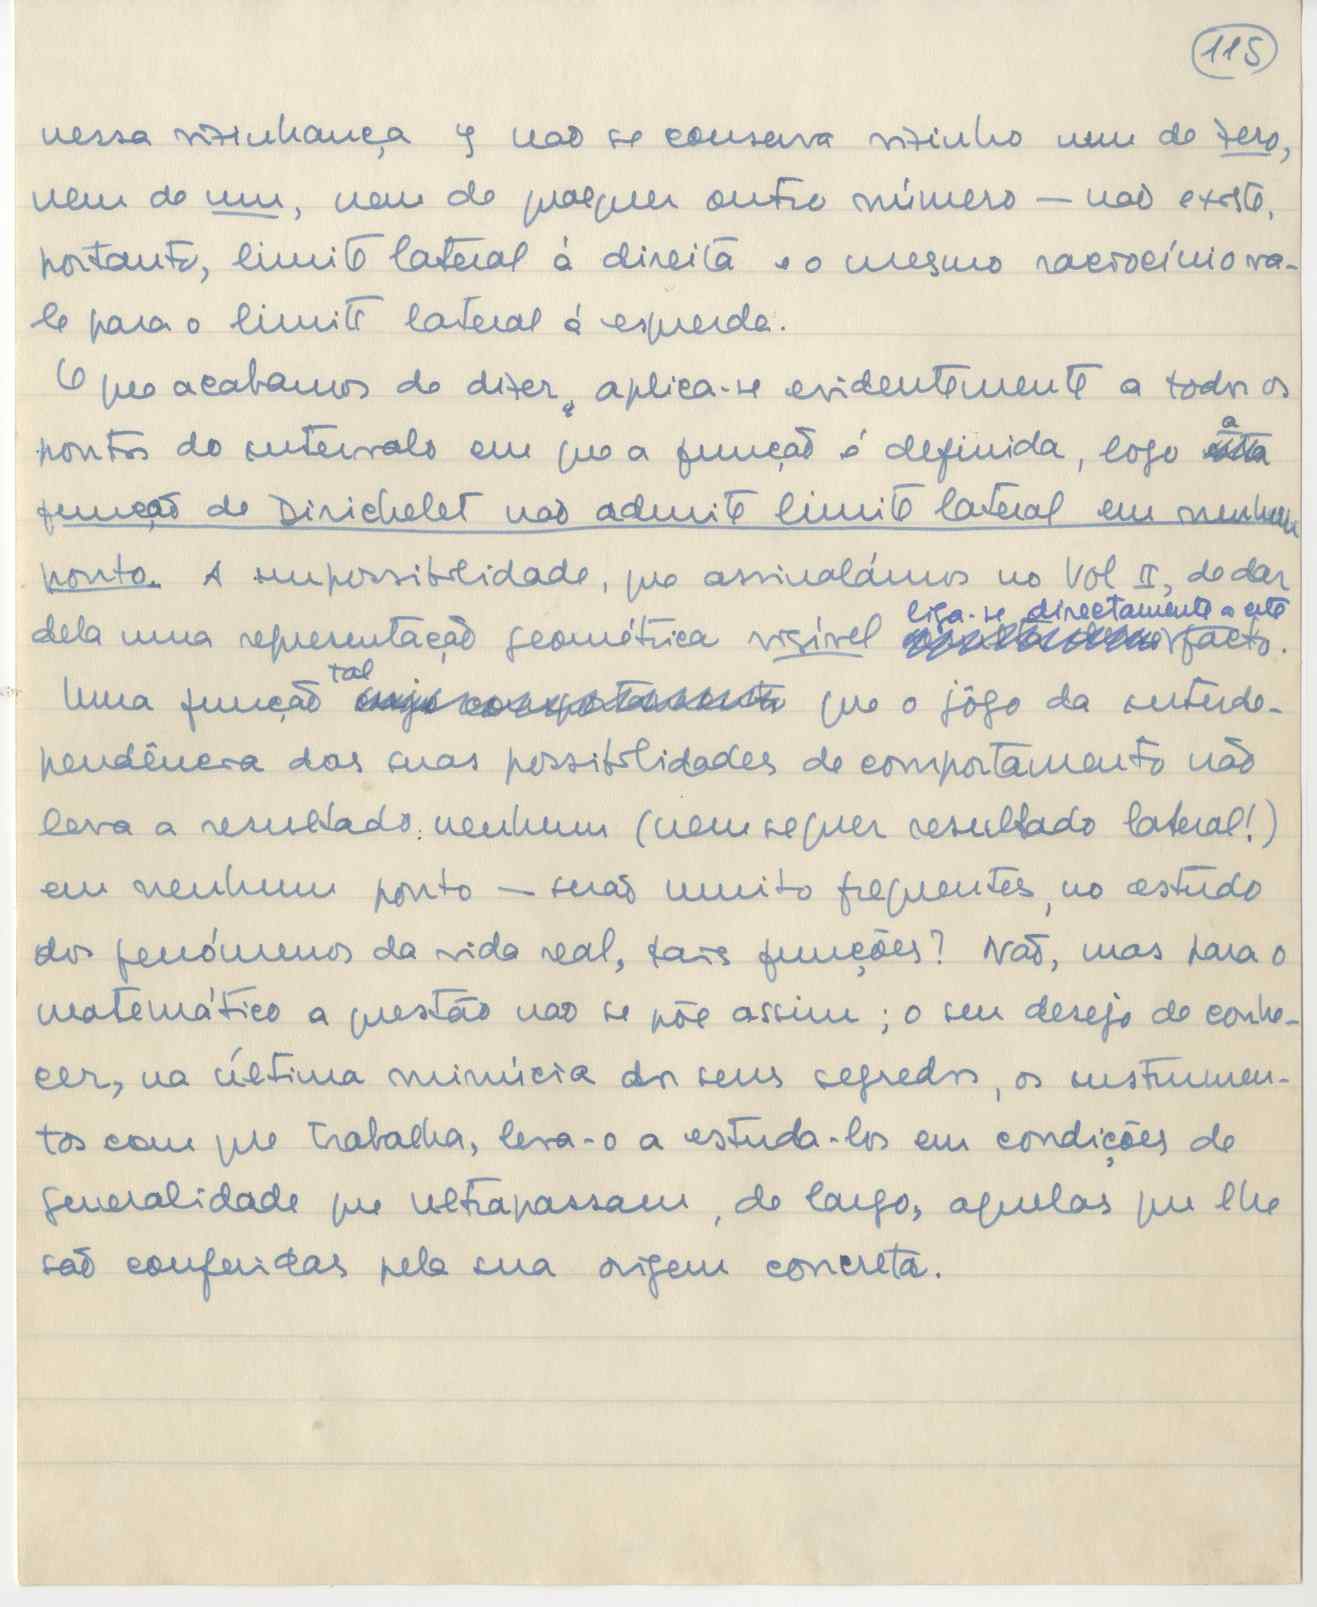 115
nessa vizinhança y não se conserva vizinho nem de zero,
nem de um, nem de qualquer outro número — não existe,
portanto, limite lateral à direita e o mesmo raciocínio va-
le para o limite lateral à esquerda.
O que acabamos de dizer, aplica-se evidentemente a todos os
pontos do intervalo em que a função é definida, logo a
função de Dirichelet não admite limite lateral em nenhum
ponto. A impossibilidade, que assinalámos no Vol II, de dar
liga-se directamente a este
dela uma representação geométrica visível facto.
tal
Uma função cujo comportamento que o jôgo da interde-
pendência das suas possibilidades de comportamento não
leva a resultado nenhum (nem sequer resultado lateral!)
em nenhum ponto — serão muito frequentes, no estudo
dos fenómenos da vida real, tais funções? Não, mas para o
matemático a questão não se põe assim; o seu desejo de conhe-
cer, na última minúcia dos seus segredos, os instrumen-
tos com que trabalha, leva-o a estuda-los em condições de
generalidade que ultrapassam, de largo, aquelas que lhe
são conferidas pela sua origem concreta.